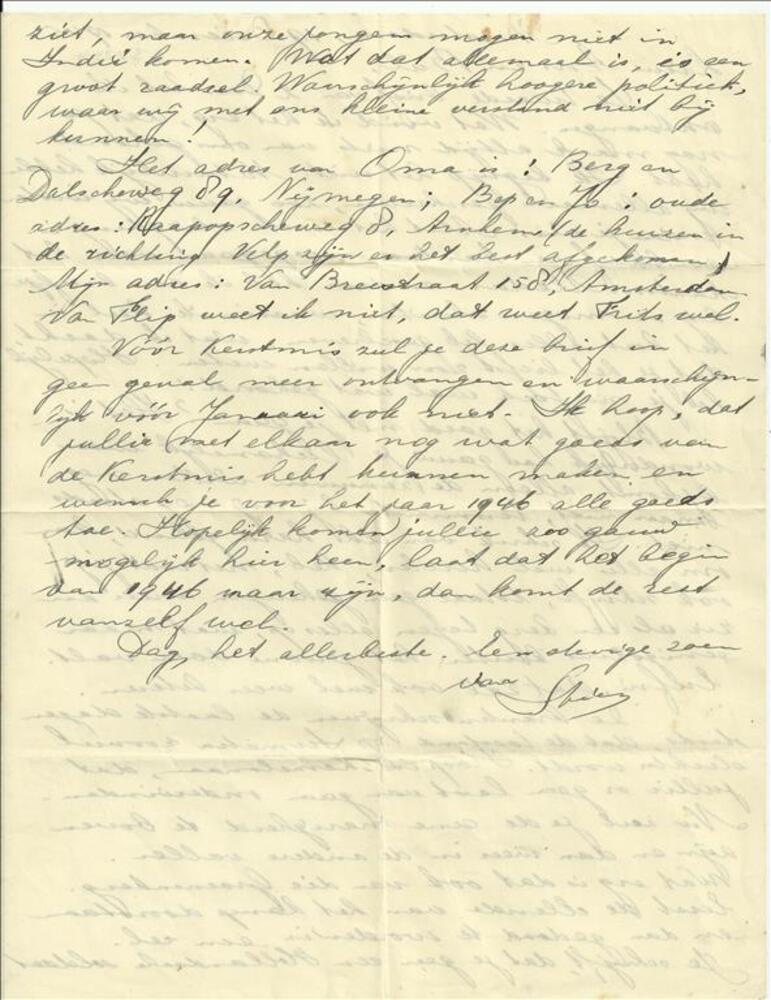 ziet, maar onze jongens mogen niet in
Indië komen. Wat dat allemaal is, is een
groot raadsel. Waarschijnlijk hoogere politiek,
waar wij met ons kleine verstand niet bij
kunnen!
Het adres van Oma is: Berg en
Dalscheweg 89, Nijmegen; Bep en Jo: oude
adres: Raapopscheweg 8, Arnhem (de huizen in
de richting Velp zijn er het best afgekomen)
Mijn adres: Van Breestraat 158, Amsterdam
Van Flip weet ik niet, dat weet Frits wel.
Vóór Kerstmis zul je deze brief in
geen geval meer ontvangen en waarschijn-
lijk vóór Januari ook niet. Ik hoop, dat
jullie met elkaar nog wat goeds van
de Kerstmis hebt kunnen maken en
wensch je voor het jaar 1946 alle goeds
toe. Hopelijk komen jullie zoo gauw
mogelijk hier heen, laat dat het begin
van 1946 maar zijn, dan komt de rest
vanzelf wel.
Dag, het allerbeste. Een stevige zoen
van